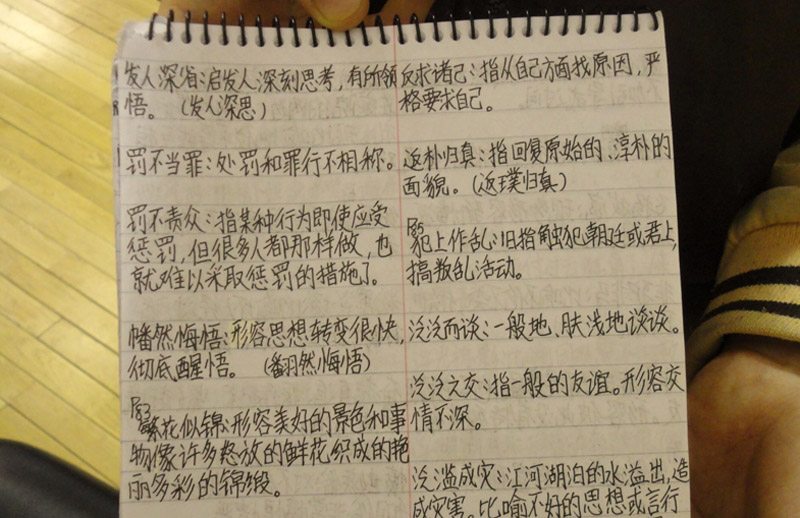 发人深省:启发人深刻思考,有所领
悟。(发人深思)
罚不当罪:处罚和罪行不相称。
罚不责众:指某种行为即使应受
惩罚,但很多人都那样做,也
就难以采取惩罚的措施了。
幡然悔悟:形容思想转变很快,
彻底醒悟。(翻然悔悟)
P83
繁花似锦:形容美好的景色和事
物像许多怒放的鲜花织成的艳
丽多彩的锦缎。
反求诸己:指从自己方面找原因,严
格要求自己。
返朴归真:指回复原始的、淳朴的
面貌。(返璞归真)
P85
犯上作乱:旧指触犯朝廷或君上,
搞叛乱活动。
泛泛而谈:一般地、肤浅地谈谈。
泛泛之交:指一般的友谊。形容交
情不深。
泛滥成灾:江河湖泊的水溢出,造
成灾害。比喻不好的思想或言行